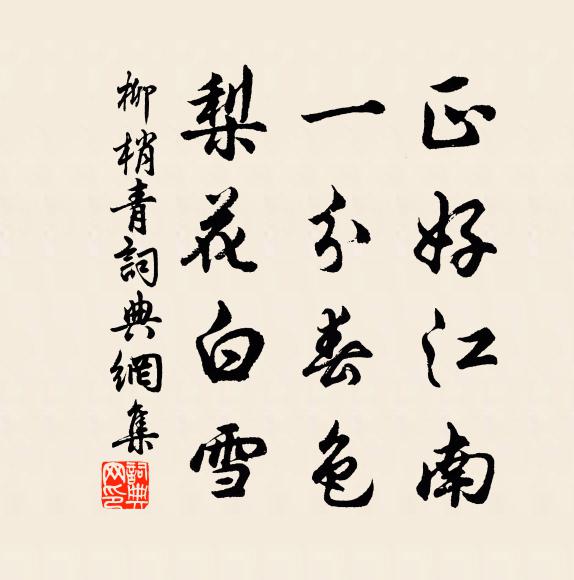 正好江南
一分春色
梨花白雪
柳梢青詞典網集
詞典网印